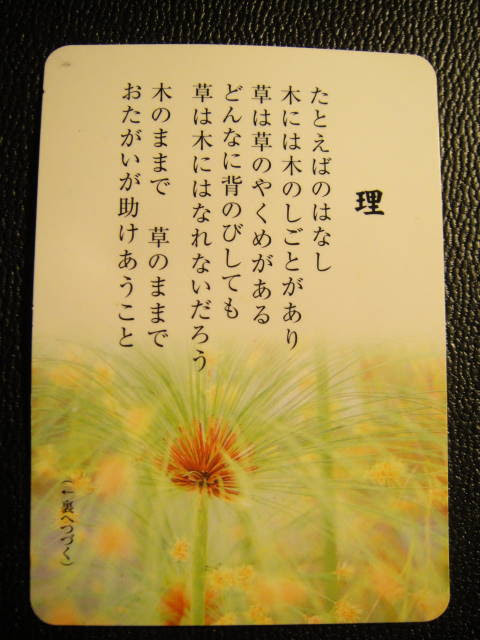 理
たとえばのはなし
木には木のしごとがあり
草は草のやくめがある
どんなに背のびしても
草は木にはなれないだろう
木のままで　草のままで
おたがいが助けあうこと
（←裏へつづく）